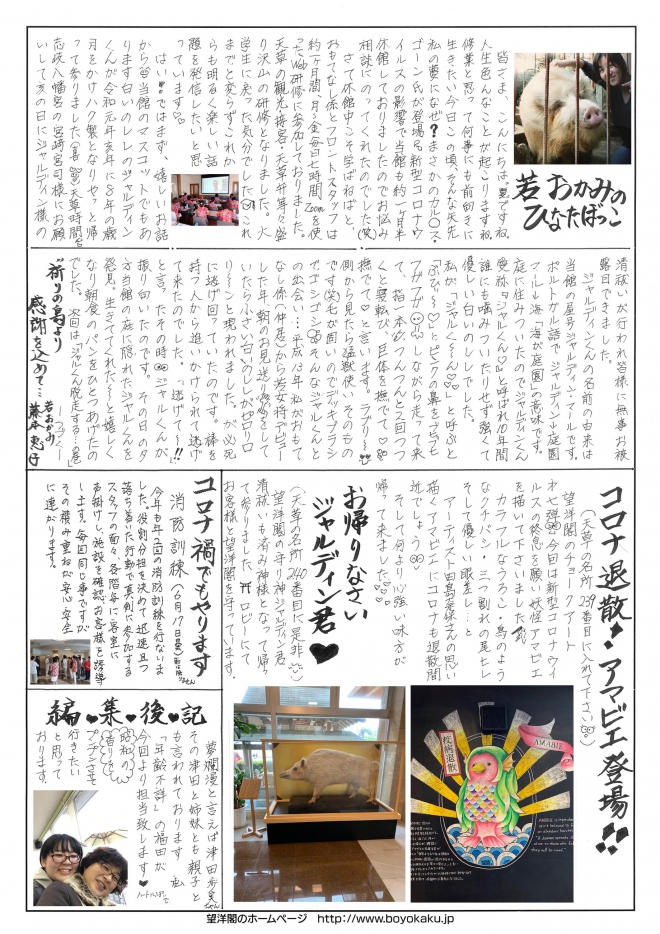 若おかみの
ひなたぼっこ
皆さま、こんにちは。夏ですね。
人生色んなことが起こりますね。
修業と思って何事にも前向きに
生きたい今日この頃。そんな矢先
私の夢になぜ?まさかのカル〇ス・
ゴーン氏が登場。新型コロナウ
イルスの影響で当館も約一ヶ月半
休館しておりましたのでお悩み
相談にのってくれたのでした(笑)
さて休館中こそ学ばねばと、
おもてなし係とフロントスタッフは
約一ヶ月間、月〜金毎日七時間、Zoomを使
ったWeb研修に参加しておりました。
天草の観光・接客・天草弁等々盛
り沢山の研修となりました。久
学生に戻った気分でした。これ
までと変らずこれか
らも明るく楽しい話
題を発信したいと思
っています♡
はい!ではまず、嬉しいお話
から。当館のマスコットでもあ
ります白いのししのジャルディン
くんが令和元年亥年に8年の歳
月をかけハク製となりやっと帰
って参りました(喜)天草時間。
志岐八幡宮の宮崎宮司様にお願
いして亥の日にジャルディン様の
清祓いが行われ皆様に無事お披
露目できました。
ジャルディンくんの名前の由来は
当館の屋号ジャルディン・マールです。
ポルトガル語でジャルディン↓庭園
マール↓海「海が庭園」の意味です。
庭に住みついたのでジャルディンくん
愛称「ジャルくん♡」と呼ばれ10年間
誰にも噛みついたりせず強くて
優しい白いのししでした。
私が「ジャルくん♡」と呼ぶと
「ぶひ〜♡」とピンクの鼻をプヒプヒ
フガフガしながら走って来
て、指一本でつんつんと2回つつ
くと寝転び、巨体を撫でて♡
撫でて♡と言います。ラブリー♡
側から見たら猛獣使いそのもの
です(笑)毛が固いのでデッキブラシ
でゴシゴシ。そんなジャルくんと
の出会い…平成13年私がおもて
なし係(仲居)から若女将デビュー
した年、朝のお見送りなどをして
いたら小さい白いのししがピロリ
リ〜ンと現われました。が必死
に逃げ回っていたのです。棒を
持つ人から追いかけられ、逃げ
て来たのでした。「逃げて〜!!」
と言ったその時、ジャルくんが
振り向いたのです。その日の夕
方当館の庭に隠れたジャルくんを
発見。生きててくれた〜と嬉しく
なり朝食のパンをひとつあげたの
でした。次回は「ジャルくん脱走する」の巻
"祈りの島"より
感謝を込めて…
若おかみ
藤本 恵子
コロナ退散!アマビエ登場!!
(天草の名所239番目に入れて下さい)
望洋閣のチョークアート
第七弾 今回は新型コロナウイ
ルスの終息を願い妖怪アマビエ
を描いて下さいました
カラフルなうろこ・鳥のよう
なクチバシ・三つ割れの尾ヒレ
そして優しい眼差し…と
アーティスト田島茉保さんの思い
描くアマビエにコロナも退散間
近でしょう
そして何より心強い味方が
帰って来ました♡♡♡
お帰りなさい
ジャルディン君♥
(天草の名所240番目に是非)
望洋閣の守り神ジャルディン君
清祓いも済み神様となって帰っ
て参りました ロビーにて
お客様と望洋閣を守っています。
コロナ禍でもやります
消防訓練(6月17日㊌)
今年も年二回の消防訓練を行ないま
した。役割分担を決めて迅速且つ
落ち着いた行動で真剣に参加する
スタッフの面々。各階毎に客室に
声掛けし、施設を確認お客様を誘導
します。毎回同じ事ですが
その積み重ねが安心安全
に連がります。
編♥集♥後♥記
夢爛漫と言えば津田歩ちゃん
その津田と姉妹とも親子と
も言われております
「年齢不詳」の福田が
今回より担当致します♥
昭和の
香りを
プンプンさせ
行きたい
と思って
おります。
疫病退散
AMABIE
望洋閣のホームページ　http://www.boyokaku.jp